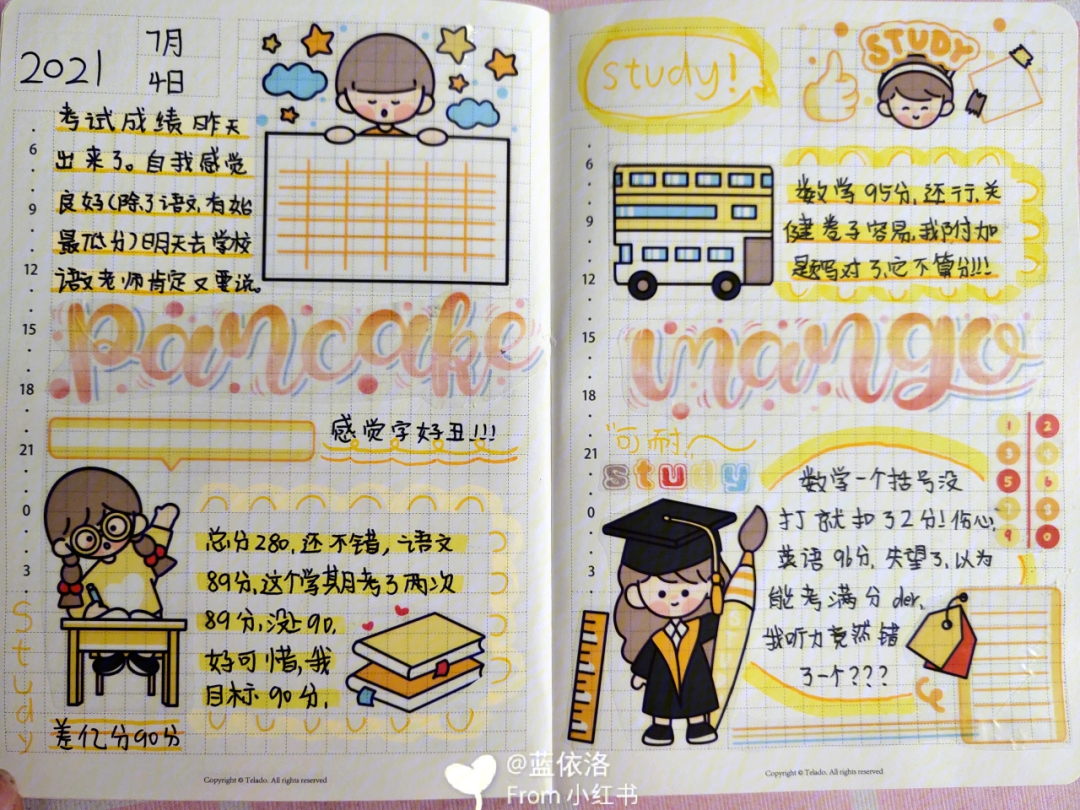 2021
7月
4日
考试成绩昨天
出来了。自我感觉
良好(除了语文,有始
最低分)明天去学校
语文老师肯定又要说。
pancake
感觉字好丑!!!
总分280,还不错,语文
89分,这个学期月考了两次
89分,没上90,
好可惜,我
目标90分,
差亿分90分
study
6
9
12
15
18
21
0
3
Copyright © Telado. All rights reserved
study!
STUDY
数学95分,还行,关
健卷子容易,我附加
题妈对了,它不算分!!!
mango
"可耐
study
数学一个括号没
打就扣了2分!伤心,
英语96分,失望了,以为
能考满分der,
我听力竟然错
了一个???
STUDY
1 2
3 4
5 6
7 8
9 0
6
9
12
15
18
21
0
3
Copyright © Telado. All rights reserved
@蓝依洛
From 小红书